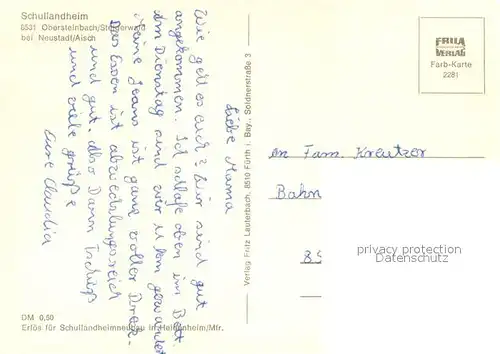 Schullandheim
8531 Obersteinbach/Steigerwald
bei Neustadt/Aisch
Liebe Mama
Wie geht es euch? Wir sind gut
angekommen. Ich schlafe oben im Bett.
Am Dienstag sind wir 11 km gewandert
Meine Jeans ist ganz voller Dreck.
Das Essen ist abwechslungsreich
und gut. Also Dann Tschüß
und viele grüße
Eure Claudia
DM 0,50
Erlös für Schullandheimneubau in Heidenheim/Mfr.
Verlag Fritz Lauterbach, 8510 Fürth i. Bay., Soldnerstraße 3
FRILA
VERLAG
Farb-Karte
2281
An Fam. Kreutzer
Bahn
85
privacy protection
Datenschutz